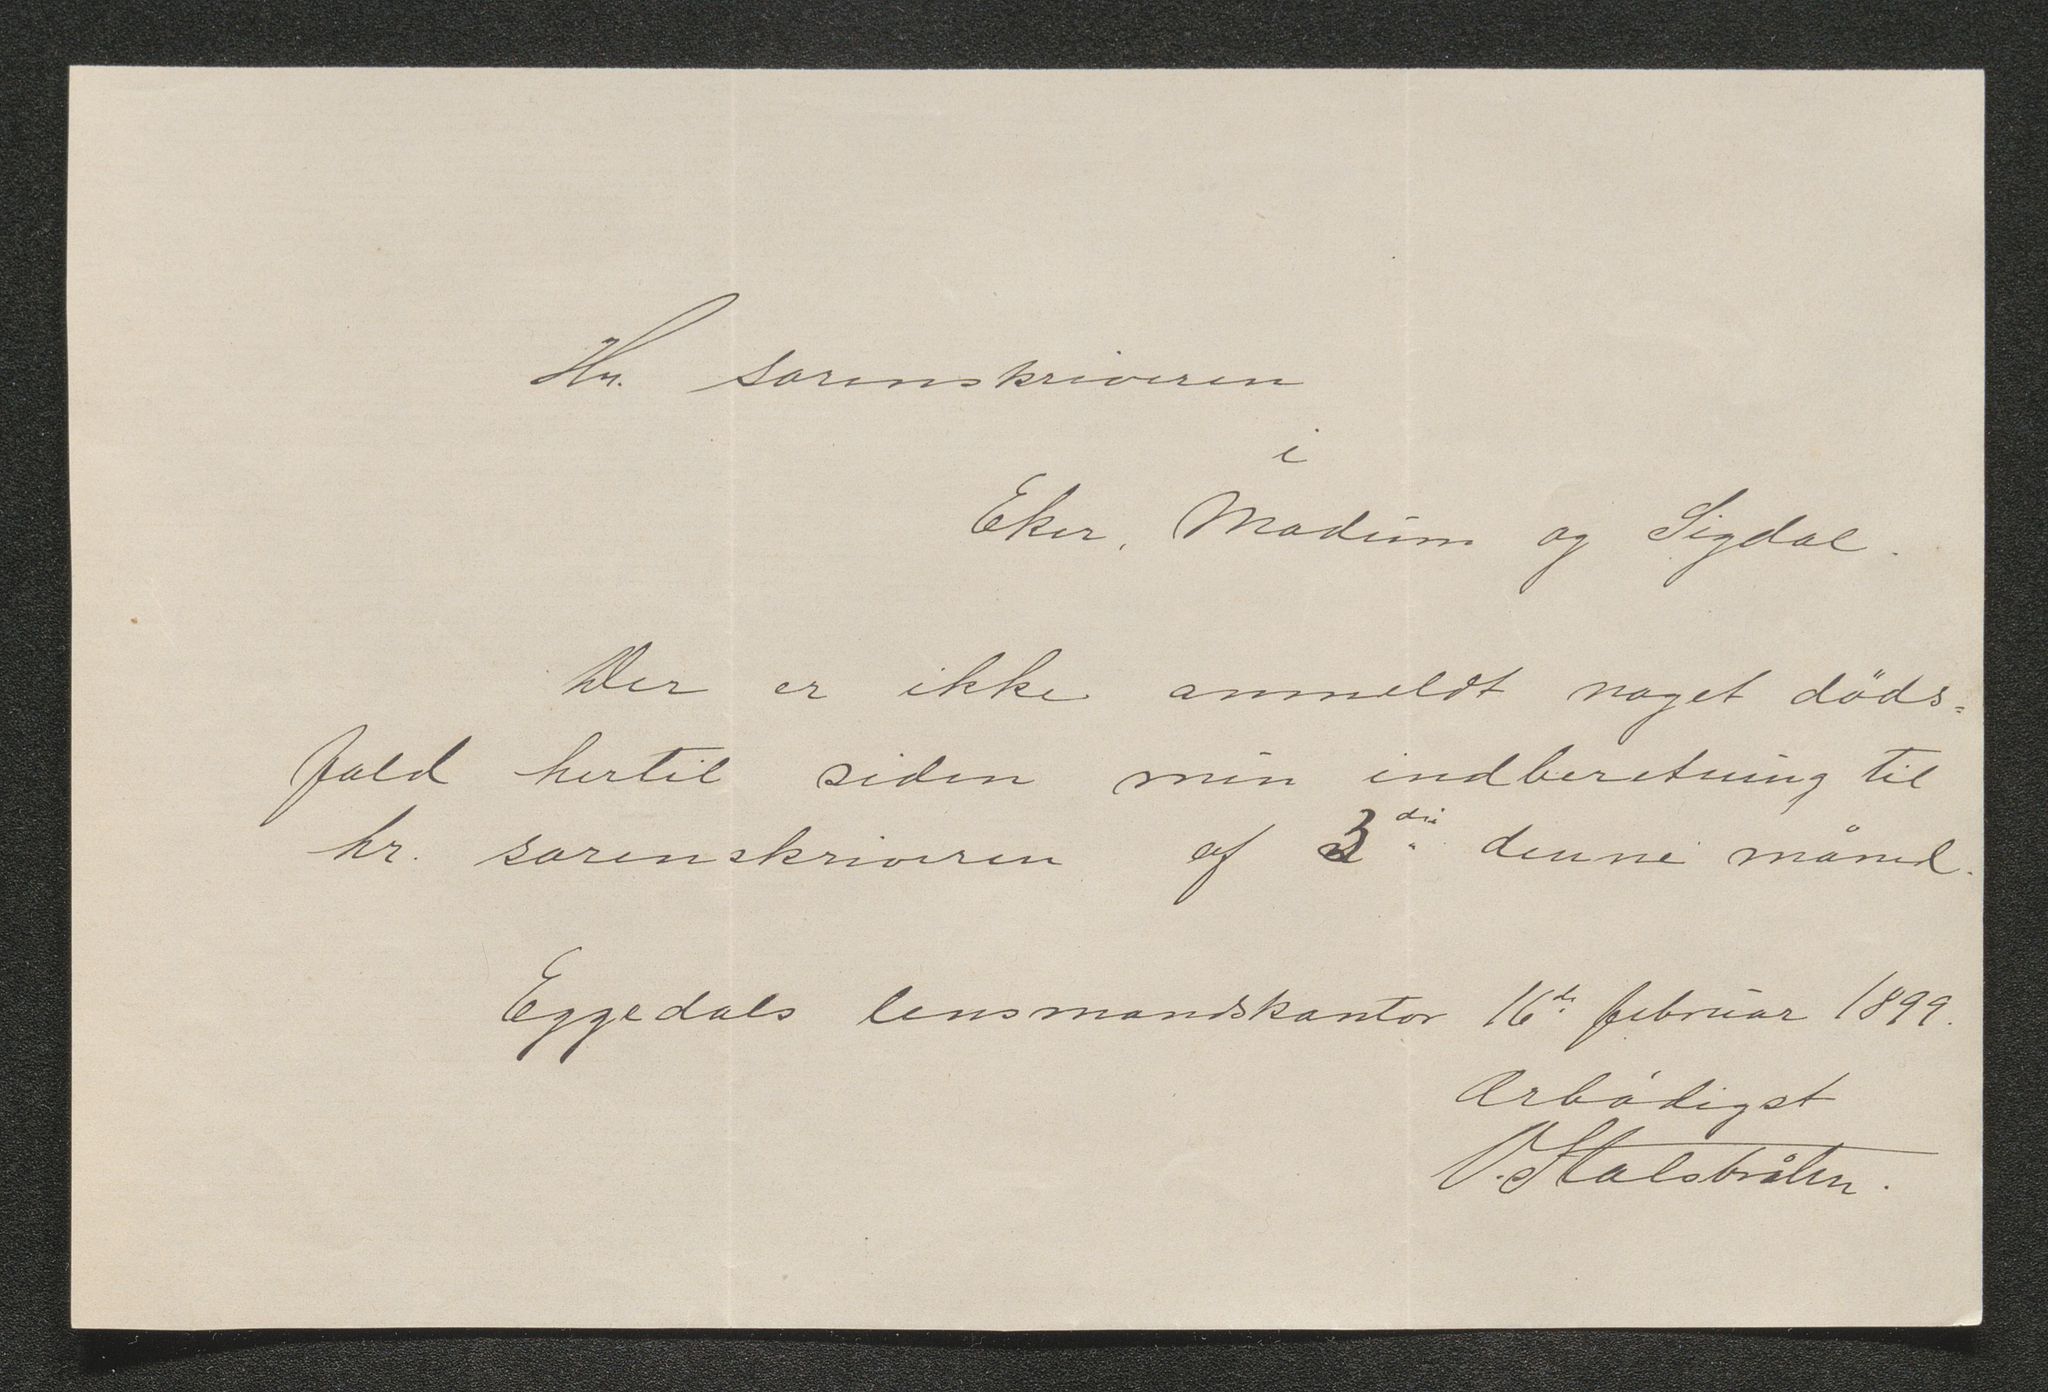 Hr. sorenskriveren
i
Eker, Modum og Sigdal.
Der er ikke anmeldt noget döds=
fald hertil siden min indberetning til
hr. sorenskriveren af 3die denne måned.
Eggedals lensmandskontor 16de februar 1899.
Ærbödigst
V. Stalsbråten.